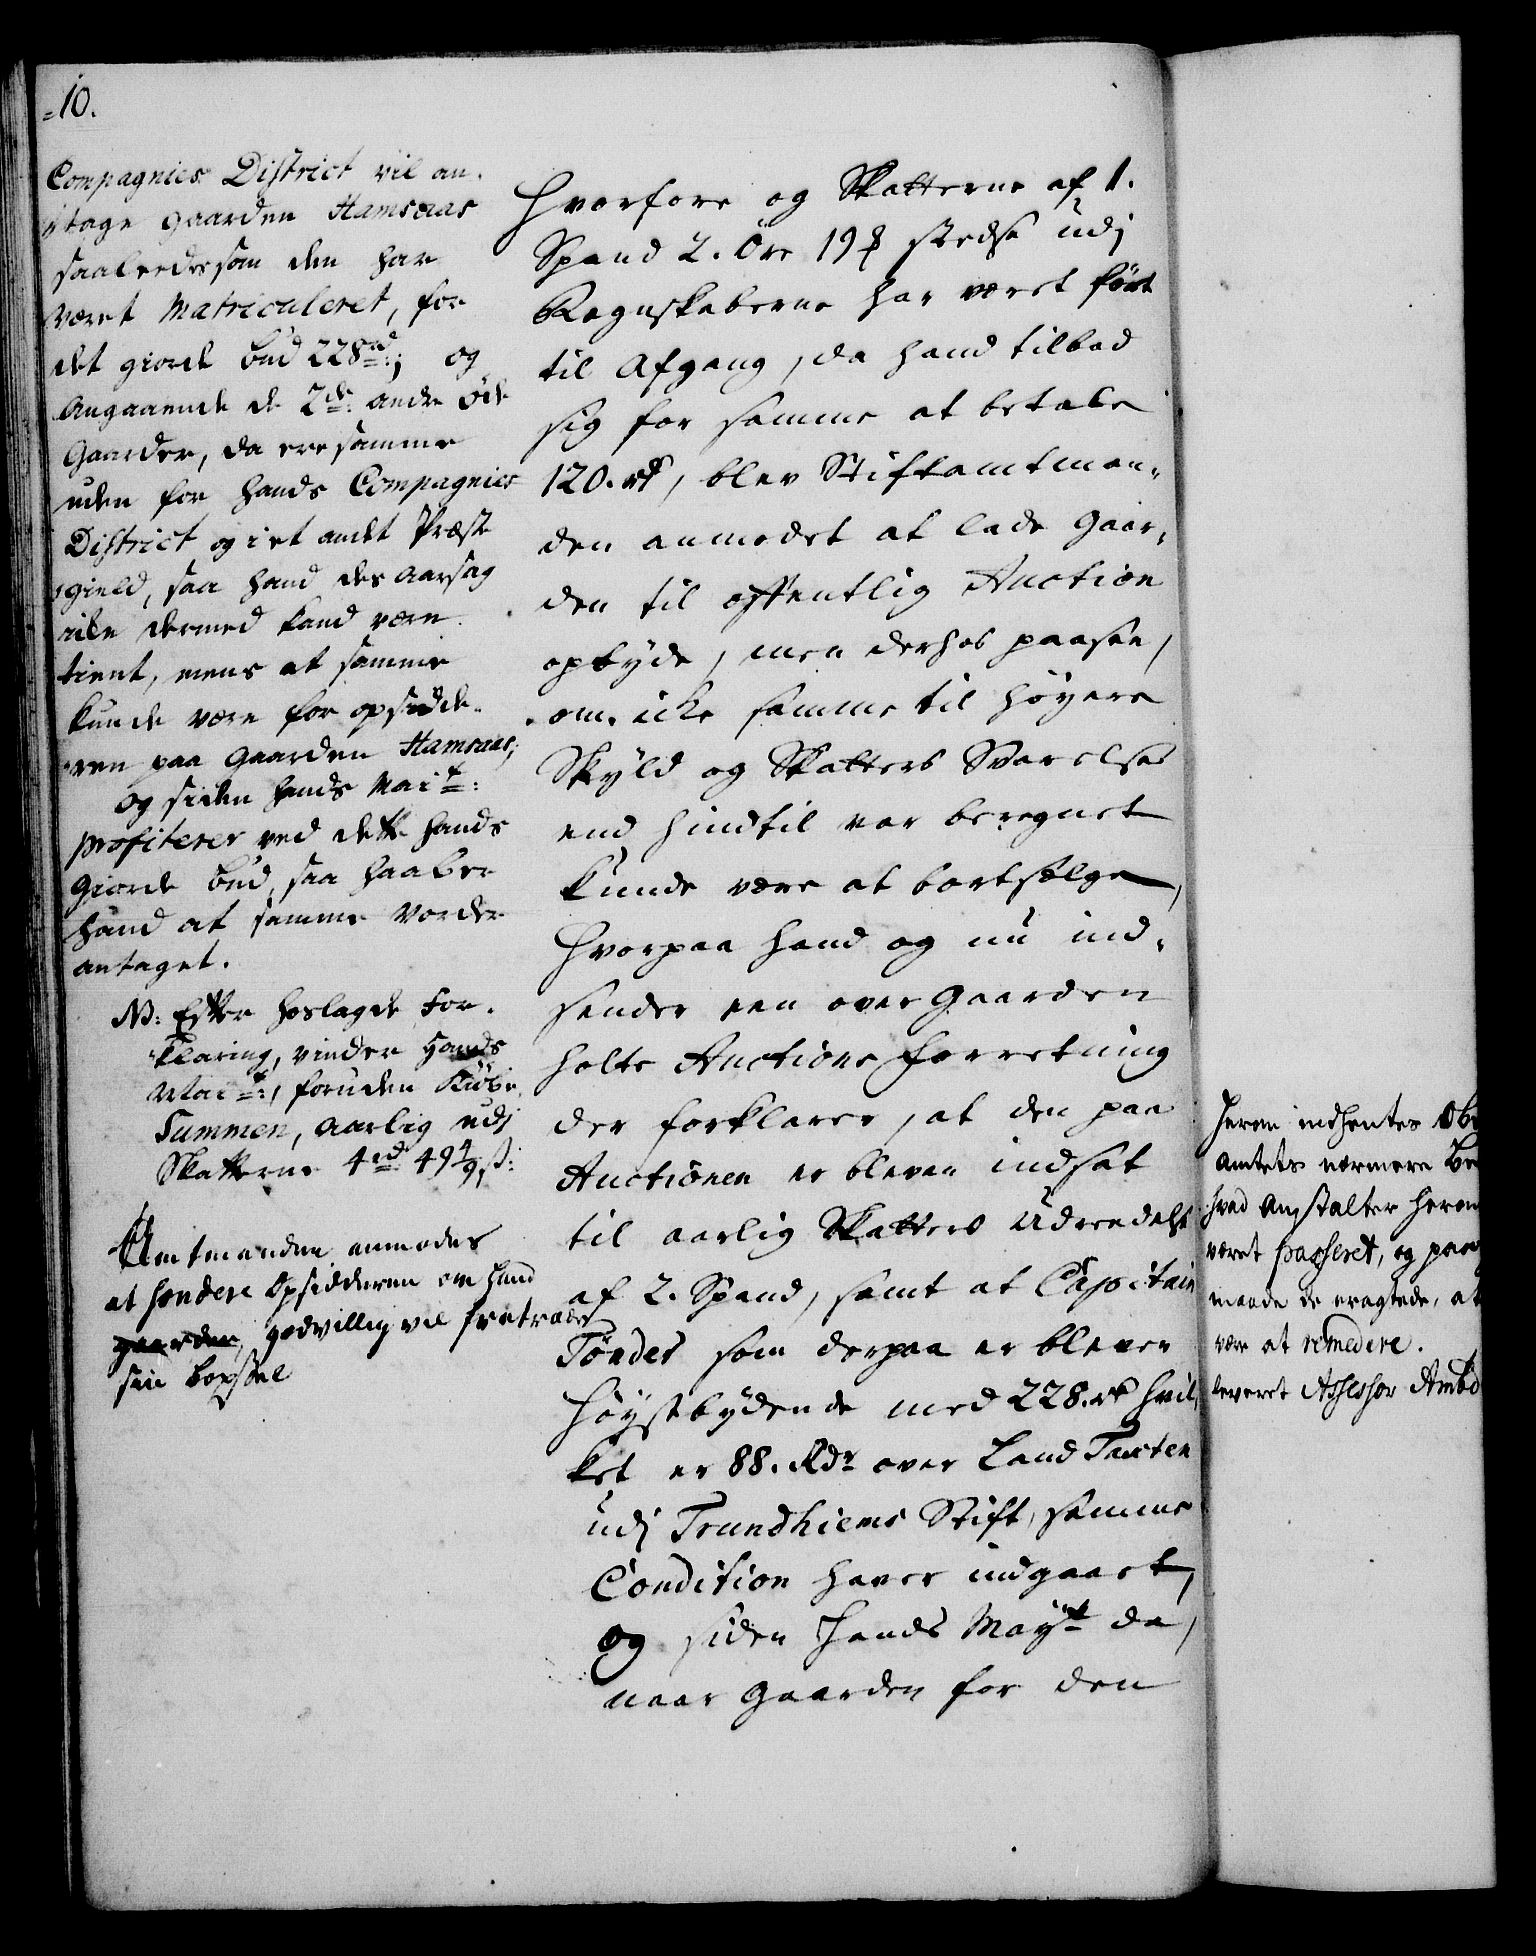 10.
Compagnies District vil an-
tage gaarden Hamsaas
saaledes som den har
været Matriculeret, for
det giorde bud 228 rd:; og
Angaaende de 2de: andre øde
Gaarder, da ere samme
uden for hands Compagnies
District og i et andet Præste
gield, saa hand des aarsag
icke dermed kand være
tient, mens at samme
kunde være for opsidde-
ren paa Gaarden Hamsaas;
og siden hands Mait:
profiterer ved dette hands
Giorde bud, saa haaber
hand at samme vorder
antaget.
NB: Efter hoslagde For-
klaring, vinder Hands
Mait:, foruden Kiøbe
Summen, aarlig udj
Skatterne 4 rd 49 4/9 s:
Amtmanden anmodes
at hondere Opsidderen om hand
gaarden, godvillig vil fratræde
sin bøxsel
Hvorfore og Skatterne af 1.
Spand 2. Öre 19 stedse udj
Regnskaberne har været ført
til Afgang, da hand tilbød
sig for samme at betale
120. rd, blev Stiftamtman-
den anmodet at lade Gaar-
den til offentlig Auction
opbyde, men derhos paasee,
om icke samme til høyere
Skyld og Skatters Svarelse
end hindtil var beregnet
kunde være at bortselge,
Hvorpaa hand og nu ind-
sender een over Gaarden
holte Auctions Forretning
der forklarer, at den paa
Auctionen er bleven indsat
til aarlig Skatters Udreedelse
af 2. Spand, samt at Capitain
Tönder som derpaa er bleven
Høystbydende med 228. rd hvil-
ket er 88. Rdr over Land Taxten
udj Trundhiems Stift, samme
Condition haver indgaaet,
og siden Hands Mayt da,
naar Gaarden for den
herom indhentes Ob
Amtets nærmere Be
hvad Anstalter herom
været passeret, og paa
maade de eragtede, at
være at remedere.
leveret Assessor Amb